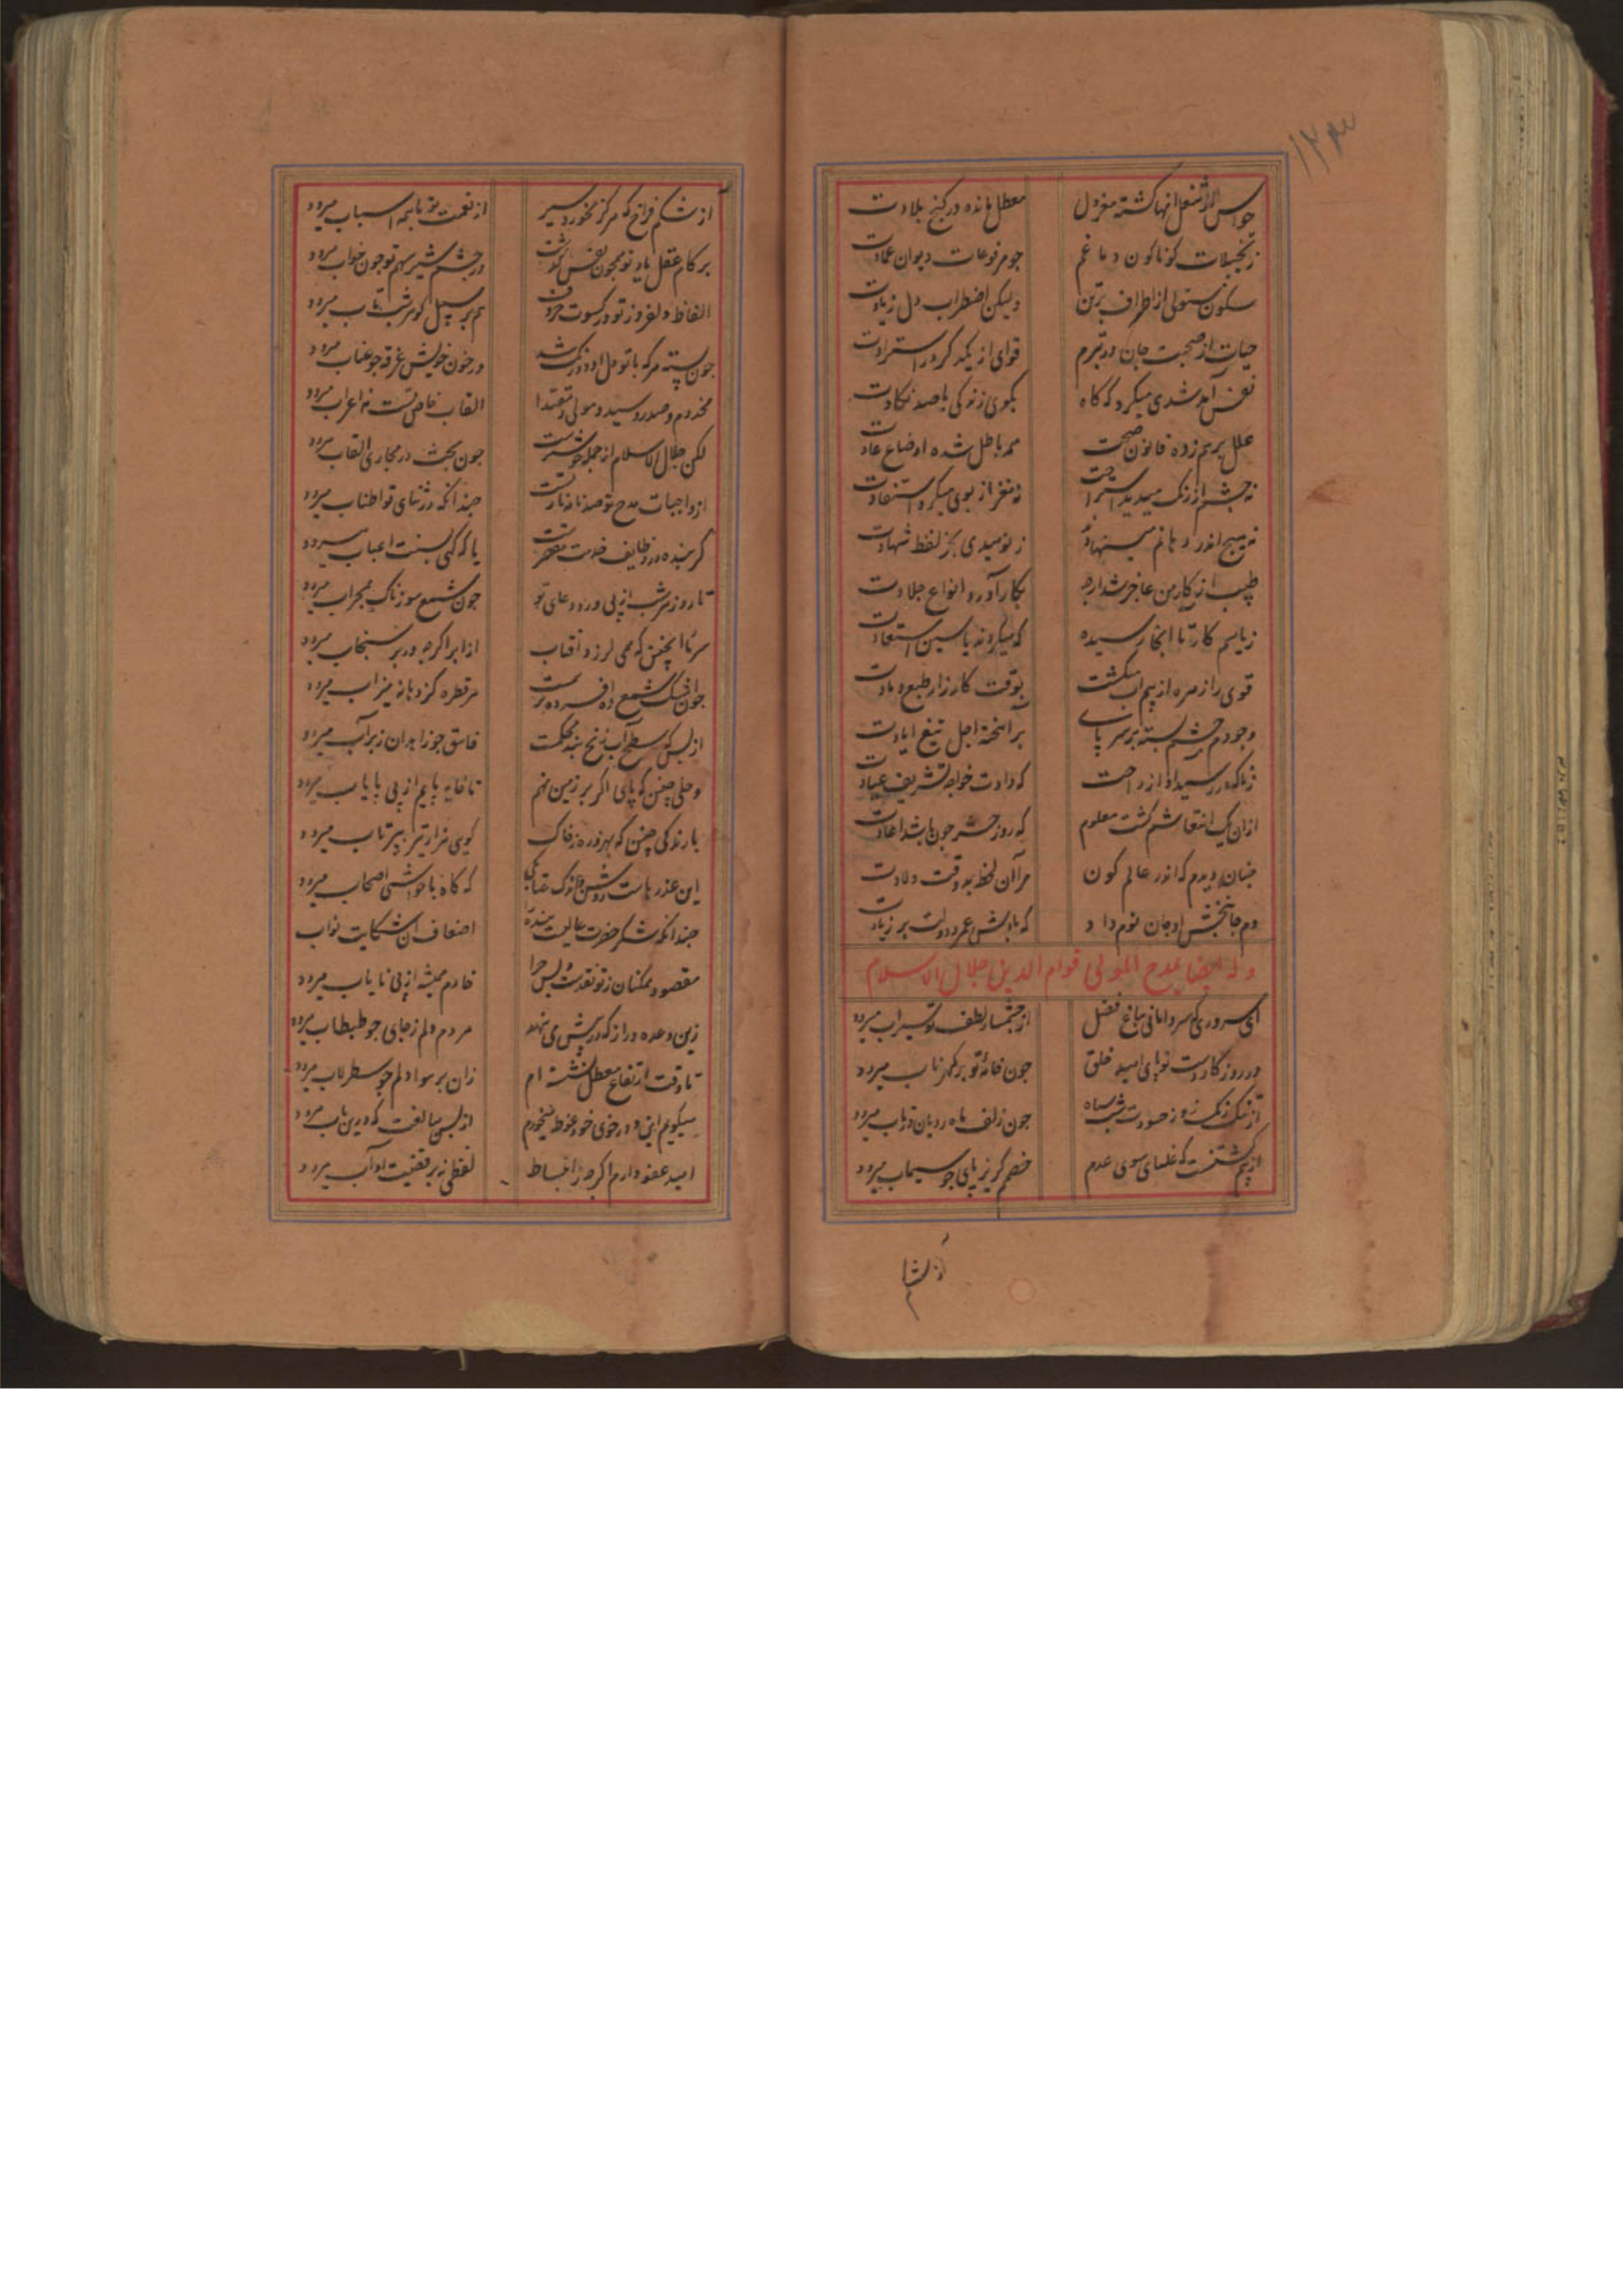 حواس از شغل انها کشته معزول معطل مانده در کنج بلادت
زتخیلات کوناکون دماغم جو مرفوعات دیوان عمادت
سکون مستولی از اطراف برتن ولیکن اضطراب دل زیادت
حیات از صحبت جان در تبرم قوای از یکدکر در استرادت
نفس آمد شدی میکرد که کاه بکوی زندکی باصد نکادت
علل برهم زده قانون صحت همه باطل شده اوضاع عادت
نه چشم از رنک میدید استراحت نه مغز از بوی میکرد استفادت
نه هیچ اندر دهانم مینهادند ز نومیدی بجز لفظ شهادت
طبیب از کار من عاجز شد ارچه بکار آورد انواع جلادت
زیاسم کار تا انجا رسیده که میکردند یاسین استعادت
قوی را زهره از بیم آب میکشت بوقت کارزار طبع و مادت
وجودم چشم بسته بر سر پای برآهخته اجل تیغ ابادت
زناکه در رسید آواز راحت که دادت خواجه تشریف عیادت
ازان یک انتعاشم کشت معلوم که روز حشر چون باشد اعادت
چنان دیدم که اندر عالم کون مرآن لحظه بد وقت ولادت
دم جانبخش او جان نوم داد که بادش عمر و دولت بر زیادت
وله ایضا یمدح المولی قوام الدین جلال الاسلام
ای سروری که سرو امانی بباغ فضل از چشمسار لطف تو سیراب میرود
در روزکار دست تو پای امید خلق جون خانه تو بر کهر ناب میرود
جون زلف ماه رویان در تاب میرود
از بیم تست که غلسای سوی عدم خصم کریز پای جو سیماب میرود
از شکم
از شکم فراخ که هرکز نخورد سیر از نعمت تو با همه اسباب میرود
بر کام عقل یاد تو همجون نفس کذشت در چشم شیر سهم تو جون خواب میرود
الفاظ دلفروز تو در کسوت حروف هم بر سبیل کوهر شب تاب میرود
جون پسته هرکه با تو دل او دو رنک شد در خون خویش غرقه جو عناب میرود
مخدوم و صدر و سید و مولی و مقتدا القاب خاص تست نه اغراب میرود
لکن جلال الاسلام از جمله خوشترست جون بحث در مجاری القاب میرود
از واجبات مدح تو صد نانه نارست جندانکه در ثنای تو اطناب میرود
کر بنده در وظایف خدمت مقصرست یا که کهی بسنت اغباب میرود
تا روز هر شب از پی ورد دعای تو جون شمع سوزناک بمحراب میرود
سرما جنین که همی لرزد آفتاب از ابر اکرچه در بر سنجاب میرود
جون اشک شمع زاده فسرده برست هر قطره کز دهانه میزاب میرود
از بس که سطح آب ز یخ بند محکمست فاسق جو زاهدان زبر آب میرود
وحلی چنین که پای اکر بر زمین نهم تا خایه پایم از پی پایاب میرود
بارندکی چنین که بهر ذره ز خاک کوی هزار تیر بپرتاب میرود
این عذرهاست روشن و لیک عتابکی که کاه با حواشی اصحاب میرود
جندانکه شکر حضرت عالیست بنده را اضعاف آن شکایت نواب میرود
مقصود همکنان ز تو نقدست و بس چرا خادم همیشه از پی نایاب میرود
زین وعده دراز که در پیش می نهند هر دم دلم ز جای جو طبطاب میرود
تا وقت ارتفاع معطل نشسته ام زان بر سواد دلم جو سطرلاب میرود
میکویم این و در خوی خود غوطه میخورم از بس مبالغت که درین باب میرود
امید عفو دارم اکرچه ز انبساط لفظی نه بر قضیت آداب میرود